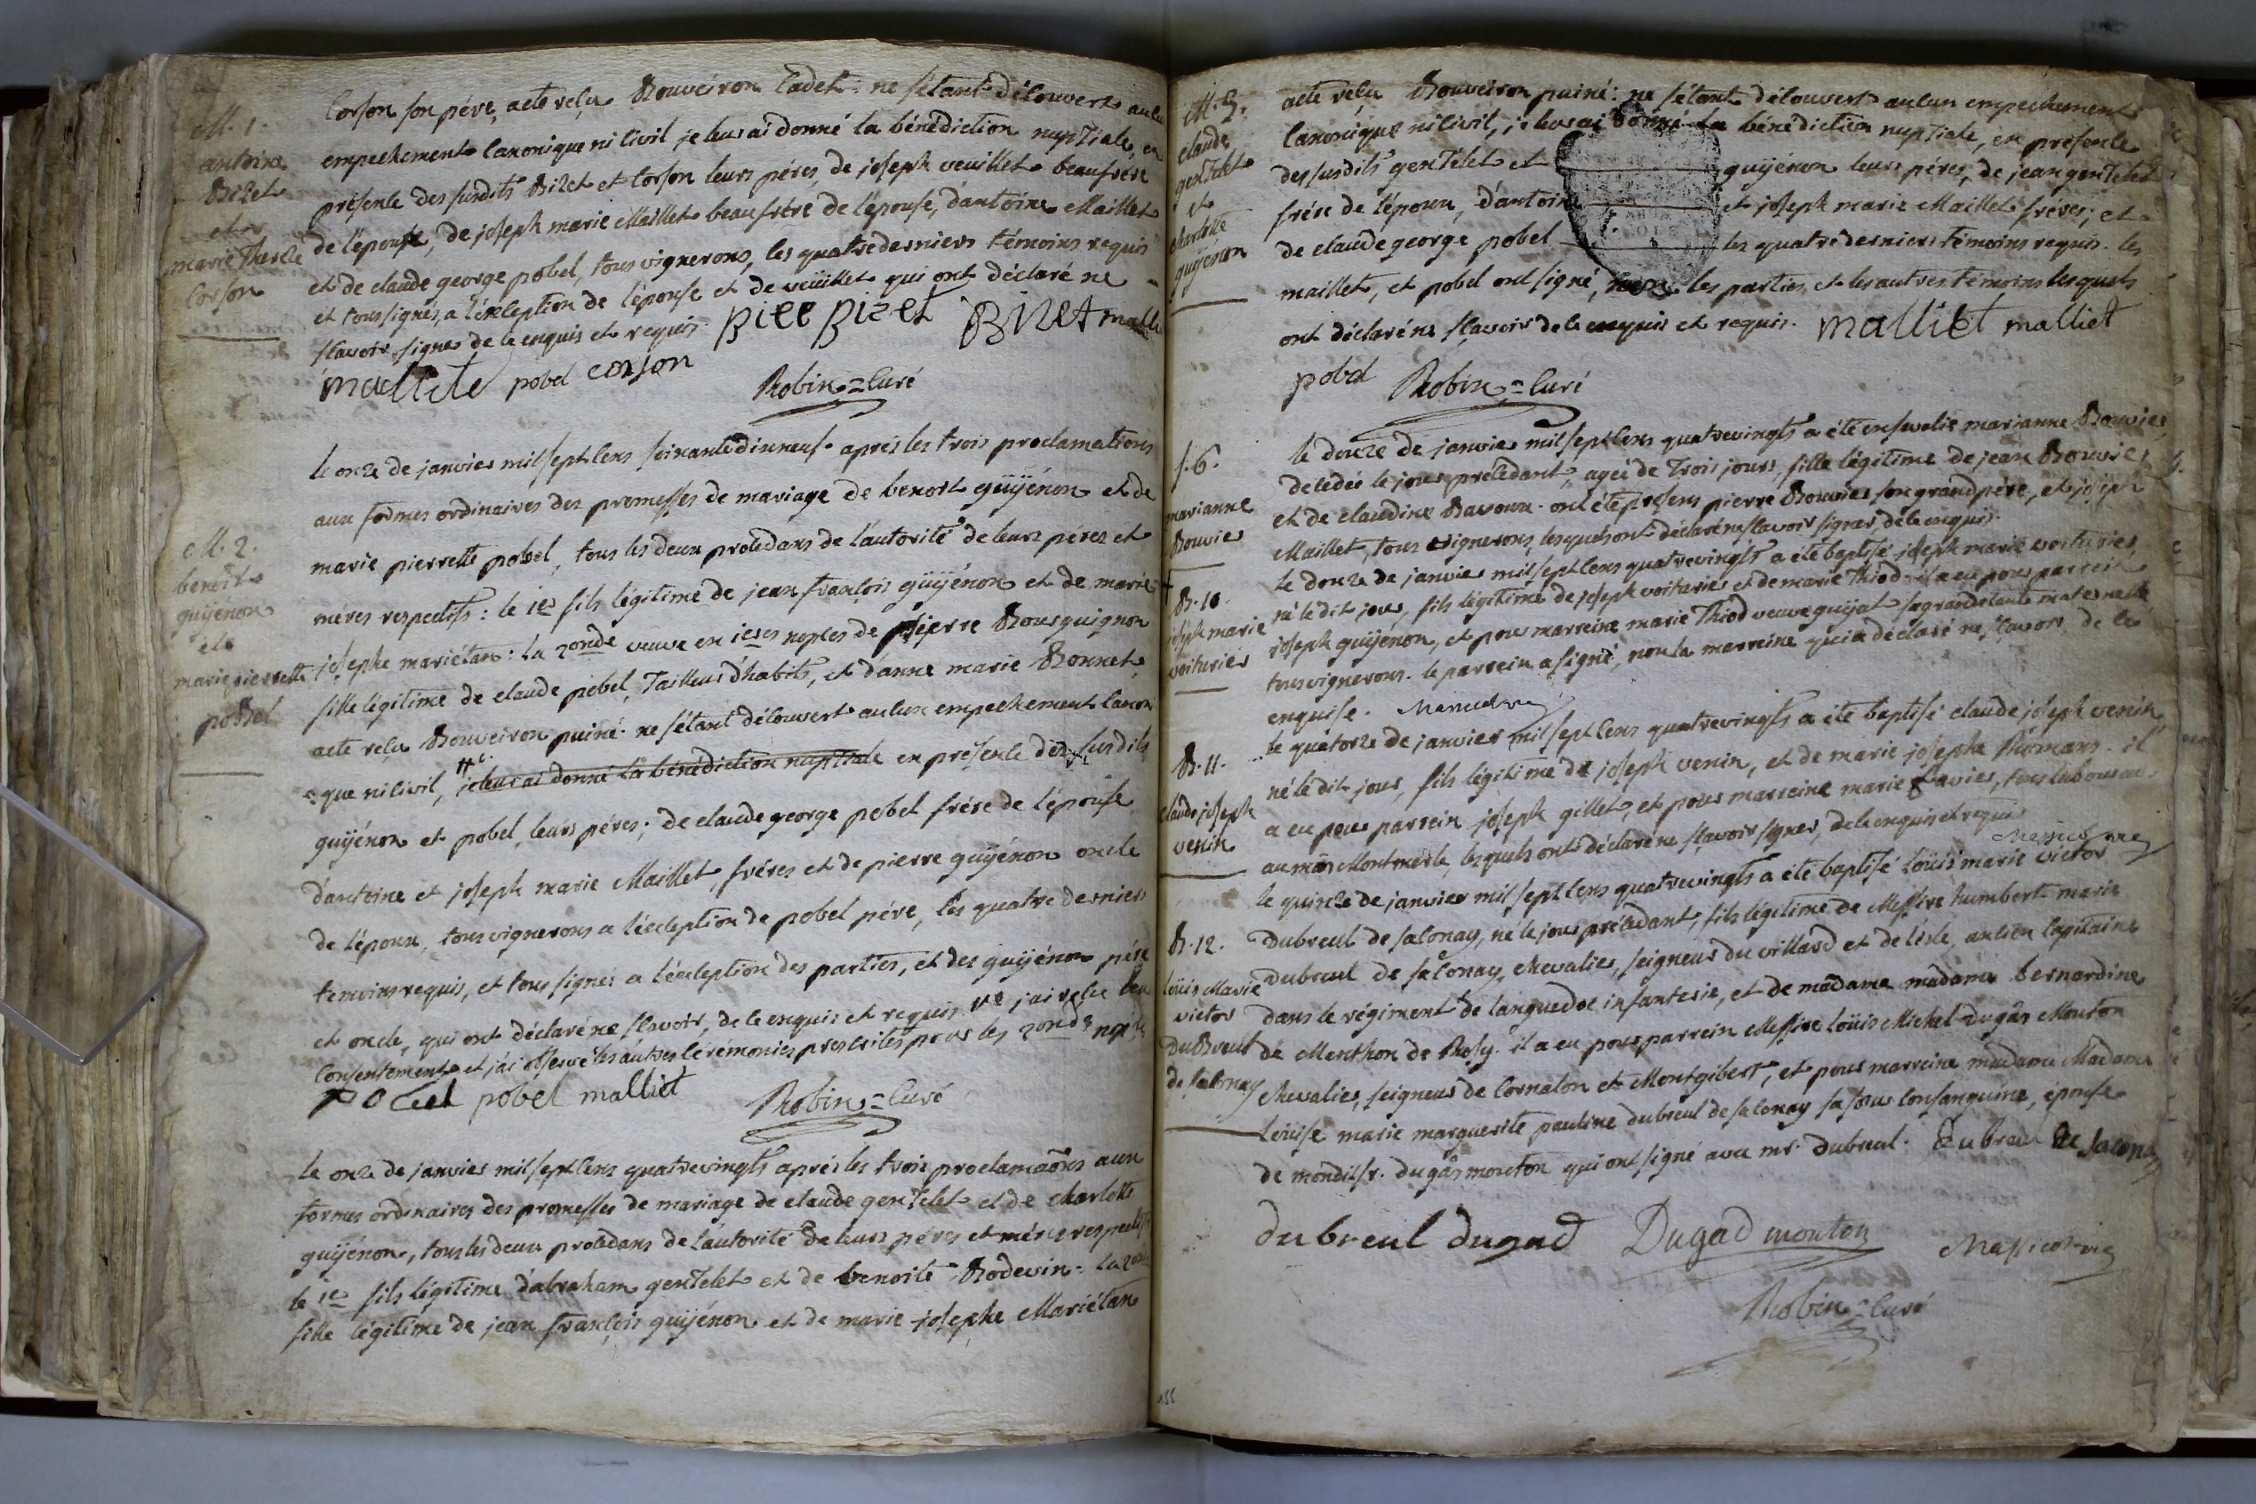 M. 1.
antoine
Bizet
et
marie Therese
Corson
Corson son pére, acte reçu Bouveiron Cadet: ne s'étant découvert aucun
empechement canonique ni civil je leur ai donné la bénédiction nuptiale, en
présence des susdits Bizet et Corson leurs péres, de joseph veuillet beaufrére
de l'épouse, de joseph marie Maillet beaufrére de l'épouse, d'antoine Maillet
et de claude george pobel, tous vignerons, les quatre derniers témoins requis
et tous signés, a l'exception de l'épouse et de veüillet qui ont déclaré ne
sçavoir signer de ce enquis et requis. piee Bizet Bizet
malliet pobel corson Robin=Curé
M. 2.
benoit
guÿenon
et
marie pierrette
pobel
le onze de janvier mil sept cens soixante dix neuf aprés les trois proclamations
aux formes ordinaires des promesses de mariage de benoit guÿénon et de
marie pierrette pobel, tous les deux procédans de l'autorité de leurs péres et
méres respectifs: le 1er fils légitime de jean françois guÿénon et de marie
josephe mariétan: la 2onde veuve en 1eres nopces de pierre Bourguignon
fille légitime de claude pobel, Tailleur d'habits, et d'anne marie Bonnet,
acte reçu Bouveiron puiné. ne s'étant découvert aucun empechement canon
=que ni civil, je leur ai donné la bénédiction nuptiale en présence des susdits
guÿénon et pobel, leurs péres; de claude george pobel frére de l'épouse
d'antoine et joseph marie Maillet, fréres et de pierre guÿénon oncle
de l'époux, tous vignerons a l'éxception de pobel pére, les quatre derniers
temoins requis, et tous signés a l'éxception des parties, et des guÿénon pére
et oncle, qui ont déclaré ne sçavoir, de ce enquis et requis. j'ai reçu leur
consentement et j'ai observé les autres cérémonies prescrites pour les 2ondes nopces
pobel malliet Robin=Curé
le onze de janvier mil sept cens quatrevingts aprés les trois proclamaõns aux
formes ordinaires des promesses de mariage de claude genTelet et de charlotte
guÿénon, tous les deux procédans de l'autorité de leurs péres et méres respectifs
le 1er fils légitime d'abraham genTelet et de benoite Bodevin: la 2onde
fille légitime de jean françois guÿénon et de marie josephe Mariétan
M. 3.
claude
genTelet
et
charlotte
guÿénon
acte reçu Bouveiron puiné: ne s'étant découvert aucun empechement
canonique ni civil, je leur ai donné la bénédiction nuptiale, en présence
des susdits genTelet et guÿénon leurs péres, de jean genTelet
frére de l'époux, d'antoine et joseph marie Maillet fréres; et
de claude george pobel les quatre derniers témoins requis. les
maillet, et pobel ont signé, les parties, et les autres témoins lesquels
ont déclaré ne sçavoir de ce enquis et requis. malliet malliet
pobel Robin=Curé
s. 6.
marianne
Bouvier
le douze de janvier mil sept cens quatrevingts a été ensevelie marianne Bouvier,
décédée le jour précédant, agée de trois jours, fille légitime de jean Bouvier
et de claudine Bavoux. ont été présens pierre Bouvier son grand pére, et joseph
Maillet, tous vignerons, lesquels ont déclaré ne sçavoir signer, de ce enquis.
B. 10.
joseph marie
voiturier
le douze de janvier mil sept cens quatrevingts a été baptisé joseph marie voiturier,
né le dit jour, fils légitime de joseph voiturier et de marie Thiod. il a eu pour parrein
joseph guÿenon, et pour marreine marie Thiod veuve guÿat sa grande tante maternelle
tous vignerons. le parrein a signé, non la marreine qui a déclaré ne sçavoir de ce
enquise.
B. 11.
claude joseph
venin
le quatorze de janvier mil sept cens quatrevingts a été baptisé claude joseph venin
né le dit jour, fils légitime de joseph venin, et de marie josephe Romans. il
a eu pour parrein joseph gillet, et pour marreine marie favier, tous laboureurs
au mas Montmerle, lesquels ont déclaré ne sçavoir signer, de ce enquis et requis
B. 12.
Loüis Marie
victor
DuBreul
de Salonay
le quinze de janvier mil sept cens quatrevingts a été baptisé Loüis marie victor
Dubreul de salonay, né le jour précédant, fils légitime de Messire humbert marie
Dubreul de salonay, chevalier, seigneur du villard et de l'isle, ancien Capitaine
dans le régiment de languedoc infanterie, et de madame madame bernardine
de Menthon de Rosy. il a eu pour parrein Messire Loüis Michel Dugas Mouton
chevalier, seigneur de Cornaton et Montgibert, et pour marreine madame Madame
Loüise marie marguerite pauline dubreul de salonay sa sœur consanguine, épouse
de mondit sr. dugas mouton qui ont signé avec mr. dubreul. Dubreul De salonay
dubreul dugad Dugad mouton
Robin=Curé